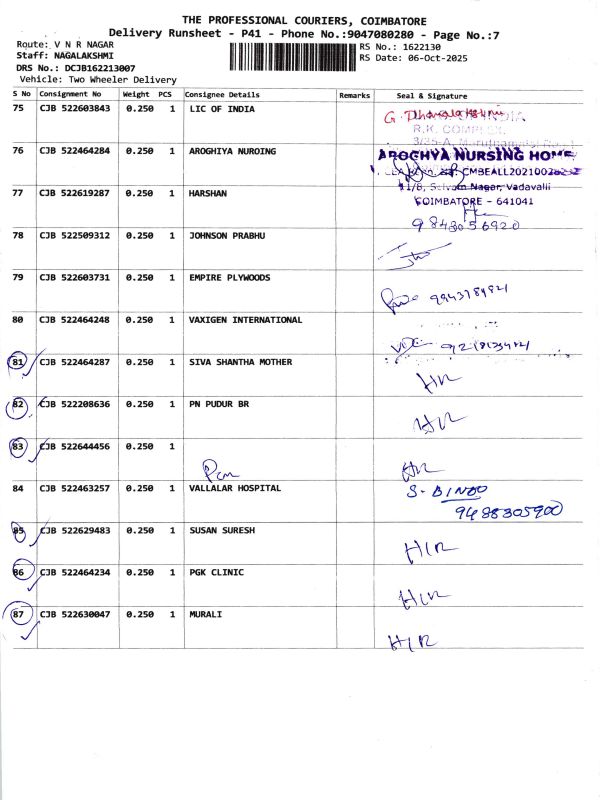 THE PROFESSIONAL COURIERS, COIMBATORE
Delivery Runsheet - P41 - Phone No.:9047080280 - Page No.:7
Route: V N R NAGAR
Staff: NAGALAKSHMI
DRS No.: DCJB162213007
Vehicle: Two Wheeler Delivery
RS No.: 1622130
RS Date: 06-Oct-2025
S No Consignment No Weight PCS Consignee Details Remarks Seal & Signature
75 CJB 522603843 0.250 1 LIC OF INDIA
R.K. COMPLEX,
76 CJB 522464284 0.250 1 AROGHIYA NUROING
AROGHYA NURSING HOME
11/8, Selvam Nagar, Vadavalli
COIMBATORE - 641041
77 CJB 522619287 0.250 1 HARSHAN
9843056920
78 CJB 522509312 0.250 1 JOHNSON PRABHU
79 CJB 522603731 0.250 1 EMPIRE PLYWOODS
80 CJB 522464248 0.250 1 VAXIGEN INTERNATIONAL
81 CJB 522464287 0.250 1 SIVA SHANTHA MOTHER
82 CJB 522208636 0.250 1 PN PUDUR BR
83 CJB 522644456 0.250 1
84 CJB 522463257 0.250 1 VALLALAR HOSPITAL S- BINDO
9488305900
85 CJB 522629483 0.250 1 SUSAN SURESH
86 CJB 522464234 0.250 1 PGK CLINIC
87 CJB 522630047 0.250 1 MURALI